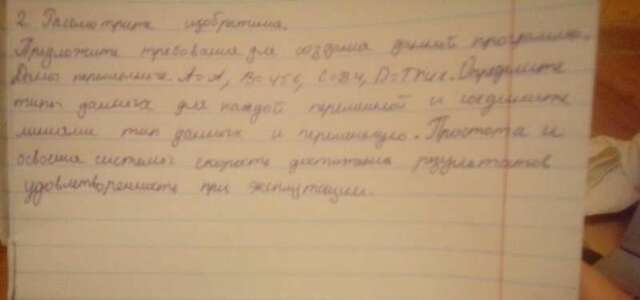 2. Рассмотрите изображения.
Предложите требования для создания данной программы.
Даны переменные A=A, B=456, C=84, D=True. Определите
типы данных для каждой переменной и соедините
линиями тип данных и переменную. Простота и
освоения системы скорость достижения результатов
удовлетворенность при эксплуатации.